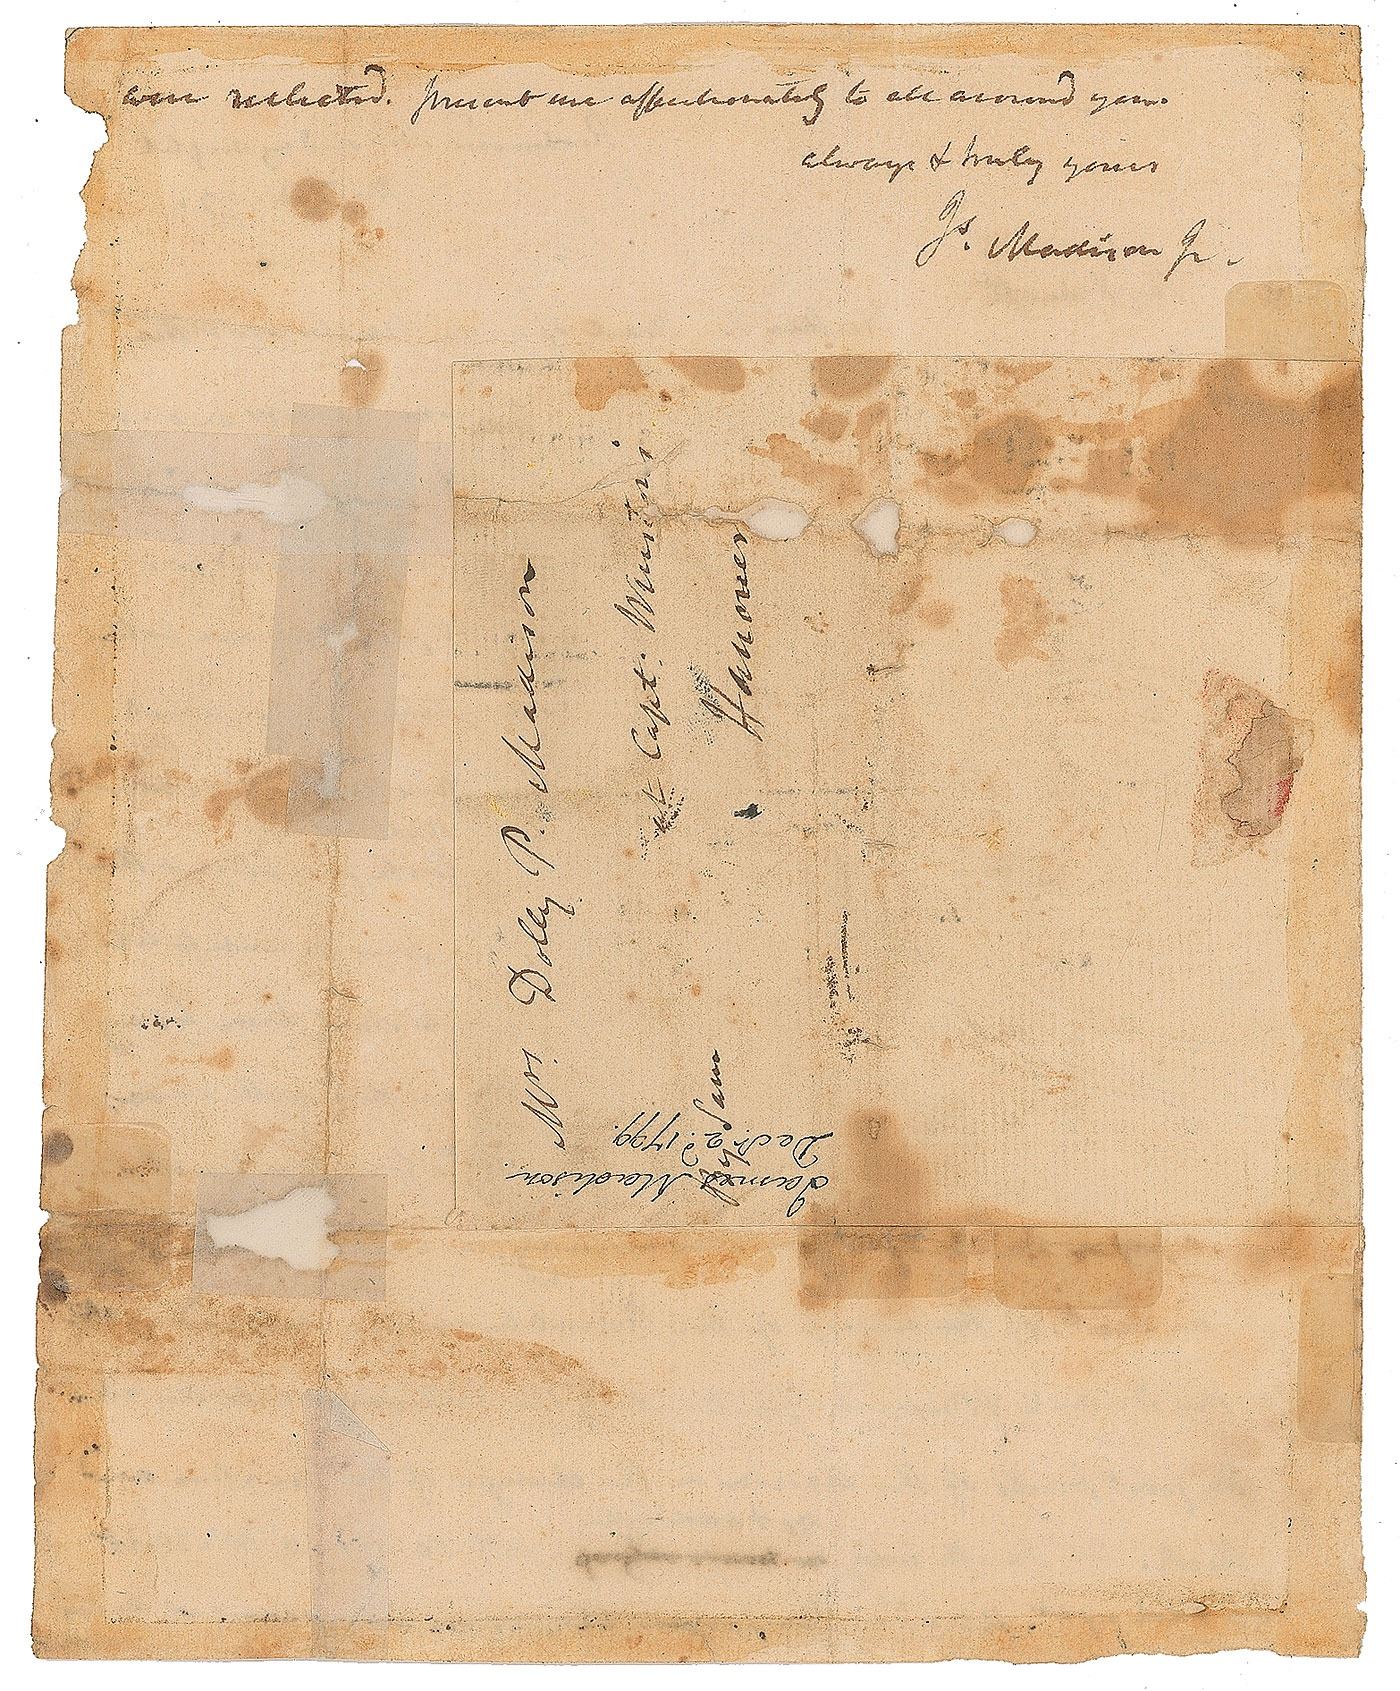 were reelected. present me affectionately to all around you.
always & truly yours
Js. Madison Jr.
Mrs. Dolly P. Madison
at Capt. Winston's
Hanover
By Sam
James Madison
Decr. 2d. 1799.